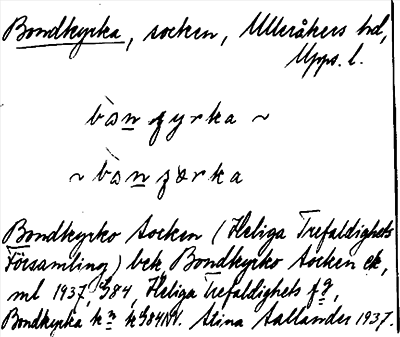 Bondkyrka, socken, Ulleråkers hd,
Upps. l.
bòn ɟyrka ~
~ bòn ɟærka
Bondkyrko socken (Heliga Trefaldighets
Församling) bek, Bondkyrko socken ek,
ml 1937, S84, Heliga Trefaldighets fg,
Bondkyrka k S84NV. Stina Aallander 1937.